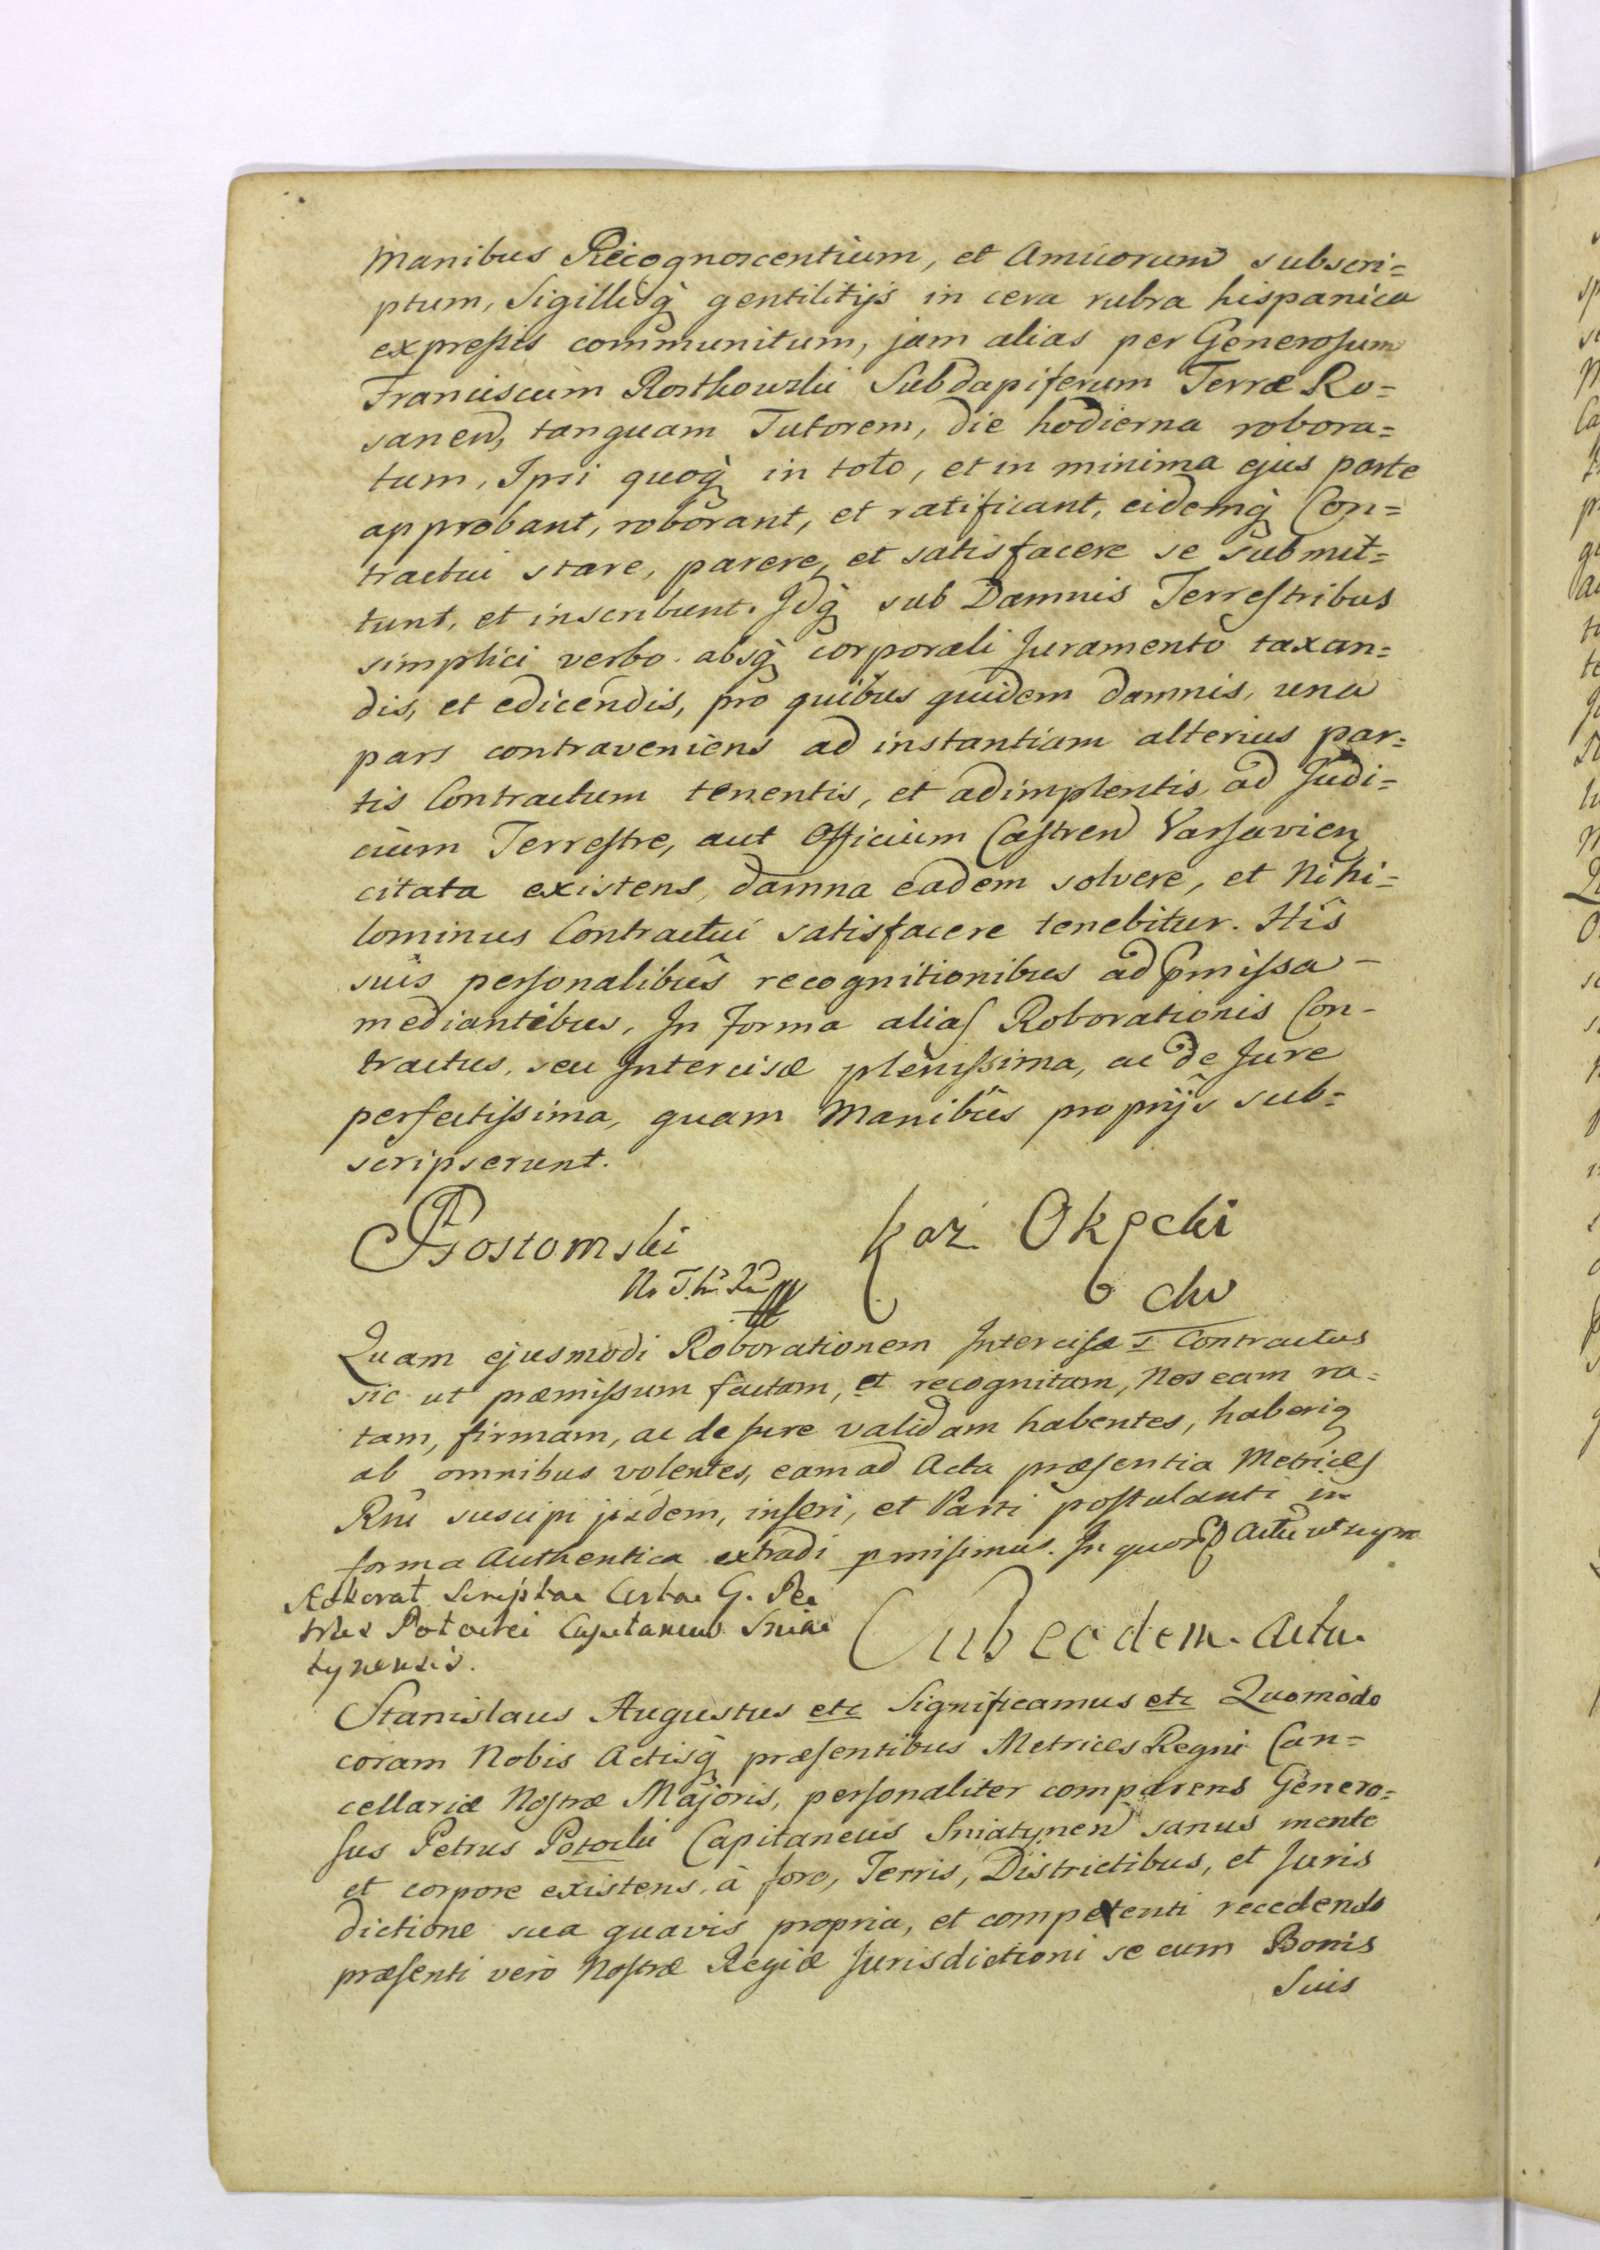 Manibus Recognoscentium, et Amicorum subscri=
ptum, Sigillisq̀ gentilitijs in cera rubra hispanica
expreſsis communitum, jam alias per Generoſum
Franciscum Rostkowski Subdapiferum Terræ Ro=
sanen, tanquam Tutorem, die hodierna robora=
tum, Ipsi quoq̀ in toto, et in minima ejus parte
approbant, roborant, et ratificant, eidemq̀ Con=
tractui stare, parere, et satisfacere se submit=
tunt, et inscribunt. Idq̀ sub Damnis Terreſtribus
simplici verbo absq̀ corporali Juramento taxan=
dis, et edicendis, pro quibus quidem damnis, una
pars contraveniens ad instantiam alterius par=
tis Contractum tenentis, et adimplentis, ad Judi=
cium Terreſtre, aut Officium Caſtren Varſavien
citata existens, damna eadem solvere, et Nihi=
lominus Contractui satisfacere tenebitur. His
suis perſonalibus recognitionibus ad pmiſsa
mediantibus, In forma alias Roborationis Con-
tractus, seu Intercisæ pleniſsima, ac de Jure
perfectiſsima, quam Manibus proprijs sub=
scripserunt.
Gostomski Kaz Okęcki
chw
Quam ejusmodi Roborationem Interciſæ s. Contractus
sic ut præmiſsum factam, et recognitam, Nos eam ra=
tam, firmam, ac de jure validam habentes, haberiq
ab omnibus volentes, eam ad Acta præſentia Metrices
Rni suscipi jisdem, inſeri, et Parti poſtulanti in
forma Authentica extradi pmisimus. In quor Actu ut supra
Roborat Scripta Certa G. Pe
trus Potocki Capitaneus Snia
tynensis.
Sub eodem. Actu.
Stanislaus Augustus etc Significamus etc Quomodo
coram Nobis Actisq̀ præſentibus Metrices Regni Can=
cellariæ Noſtræ Majoris, perſonaliter comparens Genero=
ſus Petrus Potocki Capitaneus Sniatynen sanus mente
et corpore existens, à foro, Terris, Districtibus, et Juris
dictione sua quavis propria, et competenti recedendo
præſenti vero Noſtræ Regiæ Jurisdictioni se cum Bonis
Suis